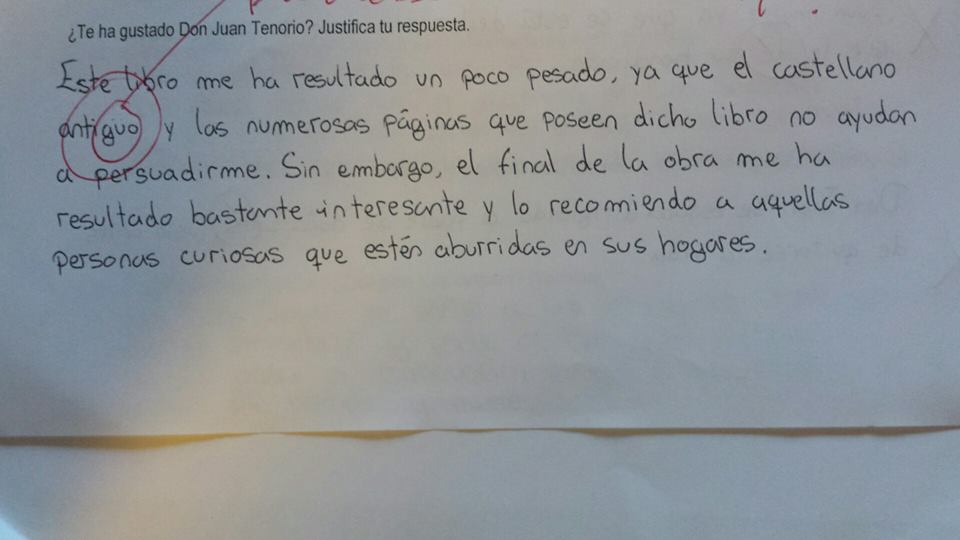 ¿Te ha gustado Don Juan Tenorio? Justifica tu respuesta.
Este libro me ha resultado un poco pesado, ya que el castellano
antiguo y las numerosas páginas que poseen dicho libro no ayudan
a persuadirme. Sin embargo, el final de la obra me ha
resultado bastante interesante y lo recomiendo a aquellas
personas curiosas que estén aburridas en sus hogares.